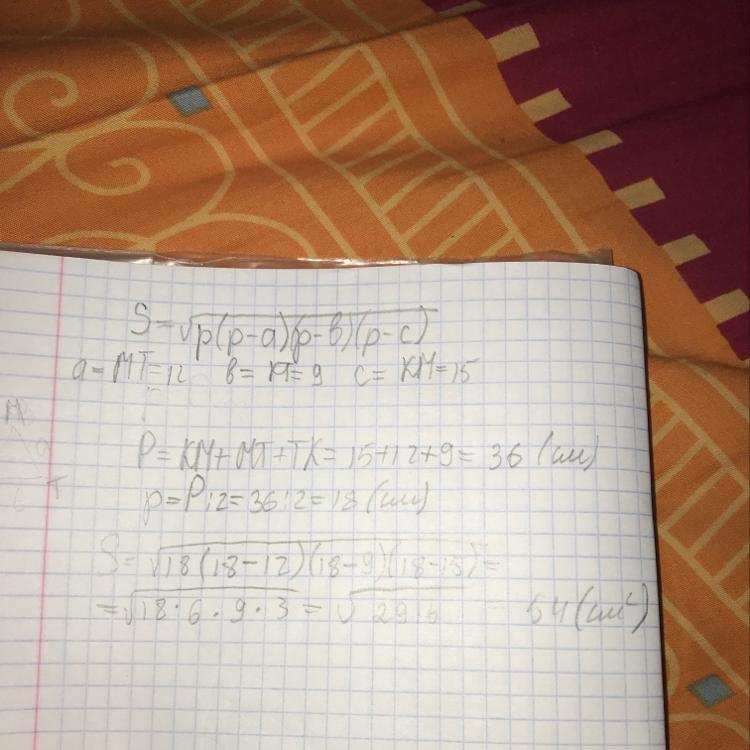 S = √p(p-a)(p-в)(p-c)
a = MT = 12 в = KT = 9 c = KM = 15
P = KM + MT + TK = 15 + 12 + 9 = 36 (см)
p = P : 2 = 36 : 2 = 18 (см)
S = √18(18-12)(18-9)(18-15) =
= √18·6·9·3 = √2916 54 (см²)
T